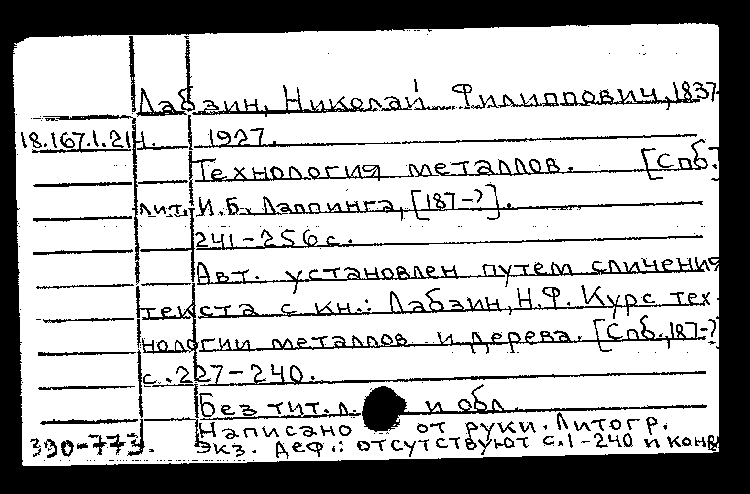 Лабзин, Николай Филиппович, 1837-
18.167.1.214. 1927.
Технология металлов. [Спб.
лит. И.Б. Лаппинга, [187-?].
241-256 с.
Авт. установлен путем сличения
текста с кн.: Лабзин, Н.Ф. Курс тех-
нологии металлов и дерева. [Спб., 187-?]
с. 227-240.
Без тит. л. и обл
Написано от руки. Литогр.
390-773. Экз. деф.: отсутствуют с. 1-240 и